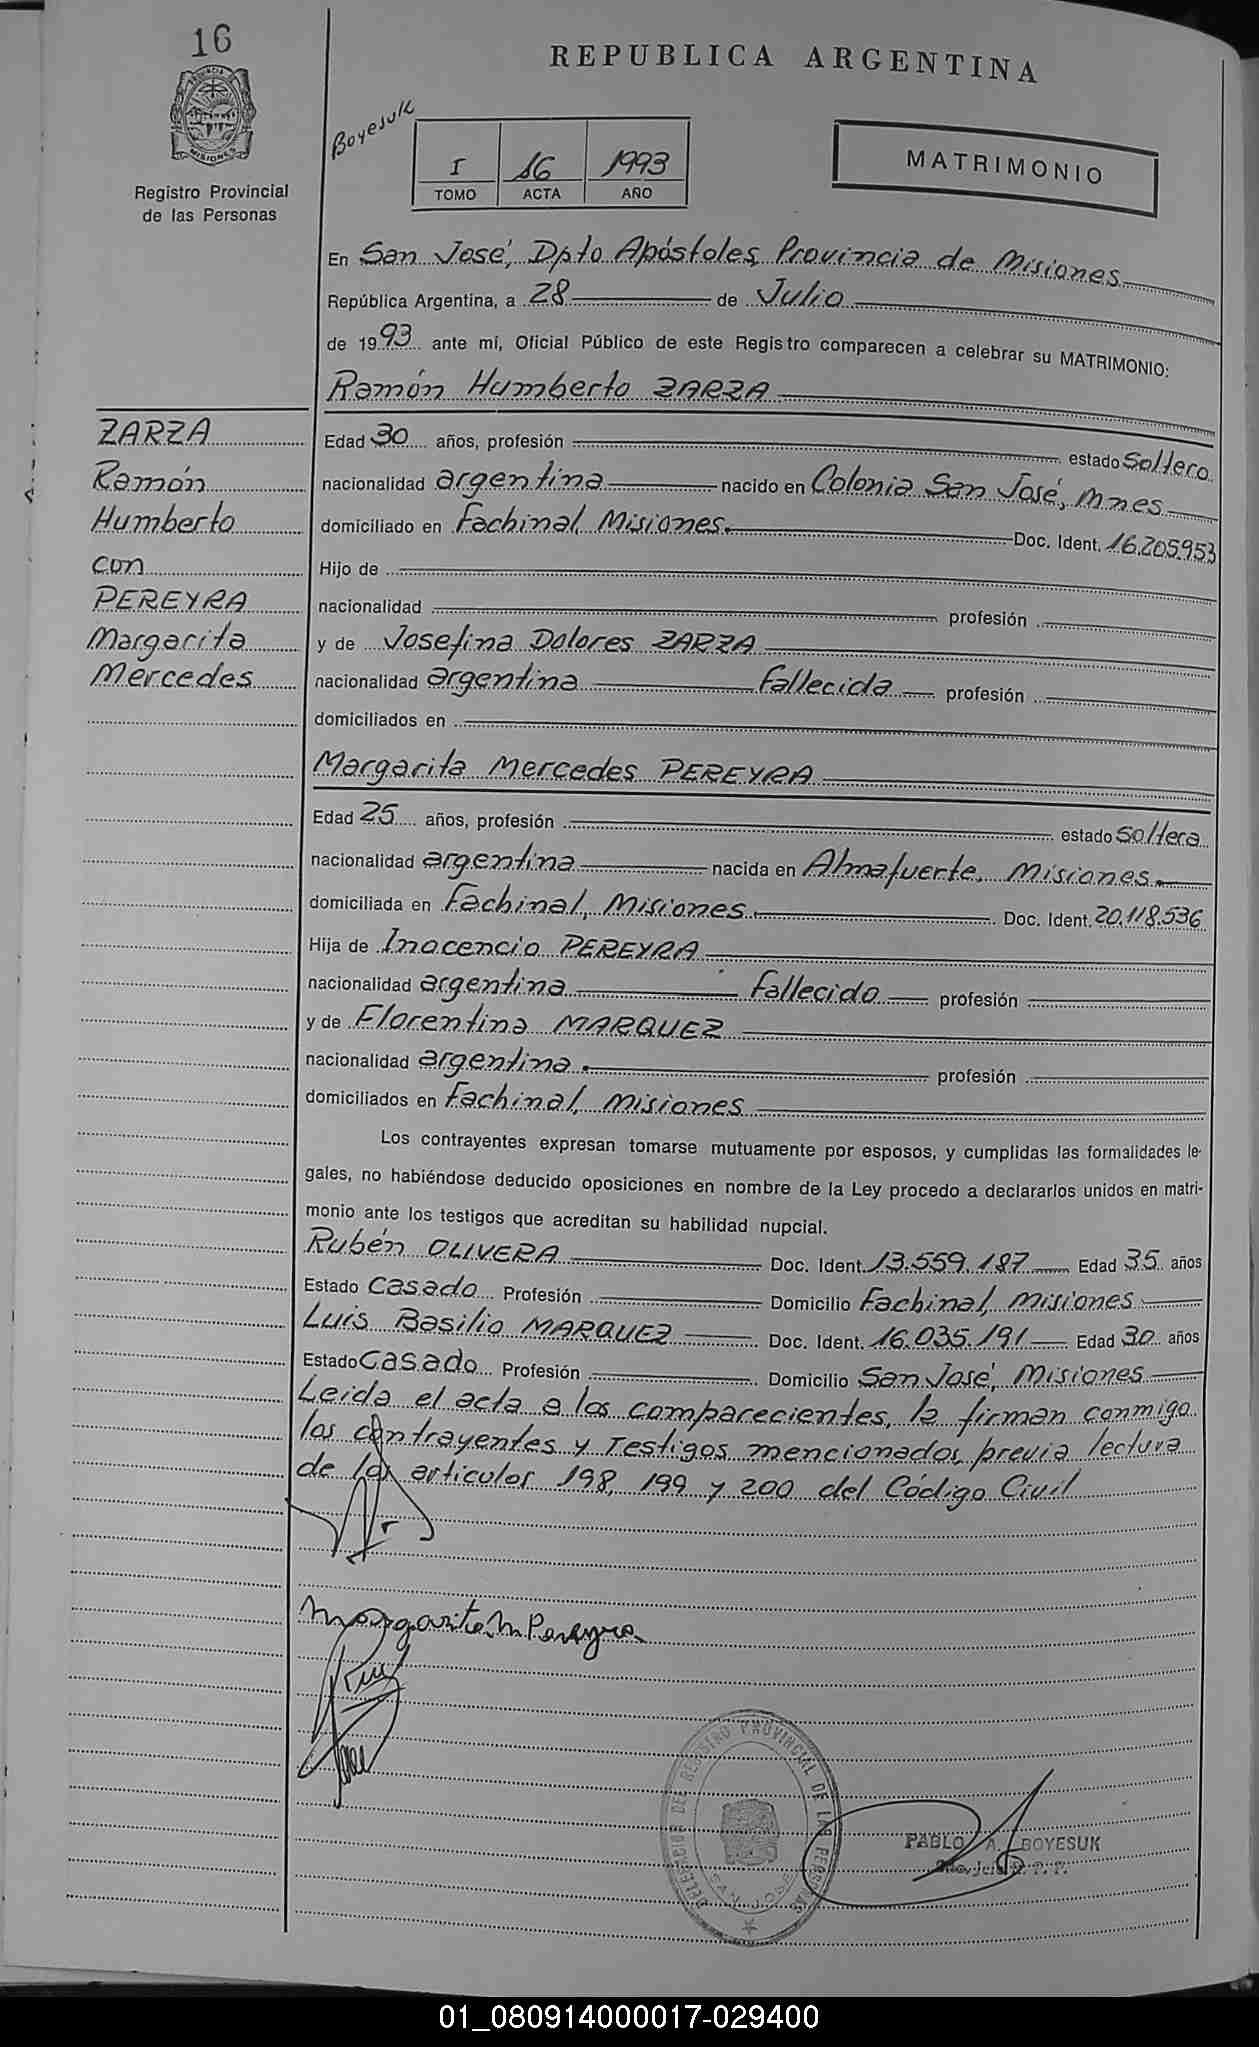 16
REPUBLICA ARGENTINA
PROVINCIA DE
MISIONES
Registro Provincial
de las Personas
Boyesuk
I 16 1993
TOMO ACTA AÑO
MATRIMONIO
En San José, Dpto Apóstoles, Provincia de Misiones
República Argentina, a 28 de Julio
de 1993 ante mí, Oficial Público de este Registro comparecen a celebrar su MATRIMONIO:
Ramón Humberto ZARZA
ZARZA
Ramón
Humberto
con
PEREYRA
Margarita
Mercedes
Edad 30 años, profesión estado Soltero
nacionalidad argentina nacido en Colonia San José, Mnes
domiciliado en Fachinal, Misiones. Doc. Ident. 16.205.953
Hijo de
nacionalidad profesión
y de Josefina Dolores ZARZA
nacionalidad argentina Fallecida profesión
domiciliados en
Margarita Mercedes PEREYRA
Edad 25 años, profesión estado Soltera
nacionalidad argentina nacida en Almafuerte, Misiones.
domiciliada en Fachinal, Misiones. Doc. Ident. 20.118.536
Hija de Inocencio PEREYRA
nacionalidad argentina Fallecido profesión
y de Florentina MARQUEZ
nacionalidad argentina. profesión
domiciliados en Fachinal, Misiones
Los contrayentes expresan tomarse mutuamente por esposos, y cumplidas las formalidades le-
gales, no habiéndose deducido oposiciones en nombre de la Ley procedo a declararlos unidos en matri-
monio ante los testigos que acreditan su habilidad nupcial.
Rubén OLIVERA Doc. Ident. 13.559.187 Edad 35 años
Estado Casado Profesión Domicilio Fachinal, Misiones
Luis Basilio MARQUEZ Doc. Ident. 16.035.191 Edad 30 años
Estado Casado Profesión Domicilio San José, Misiones
Leida el acta a los comparecientes, la firman conmigo
los contrayentes y Testigos mencionados, previa lectura
de los articulos 198, 199 y 200 del Código Civil
Margarita M Pereyra
DELEGACION DE REGISTRO PROVINCIAL DE LAS PERSONAS
SAN JOSE
PABLO A. BOYESUK
01_080914000017-029400